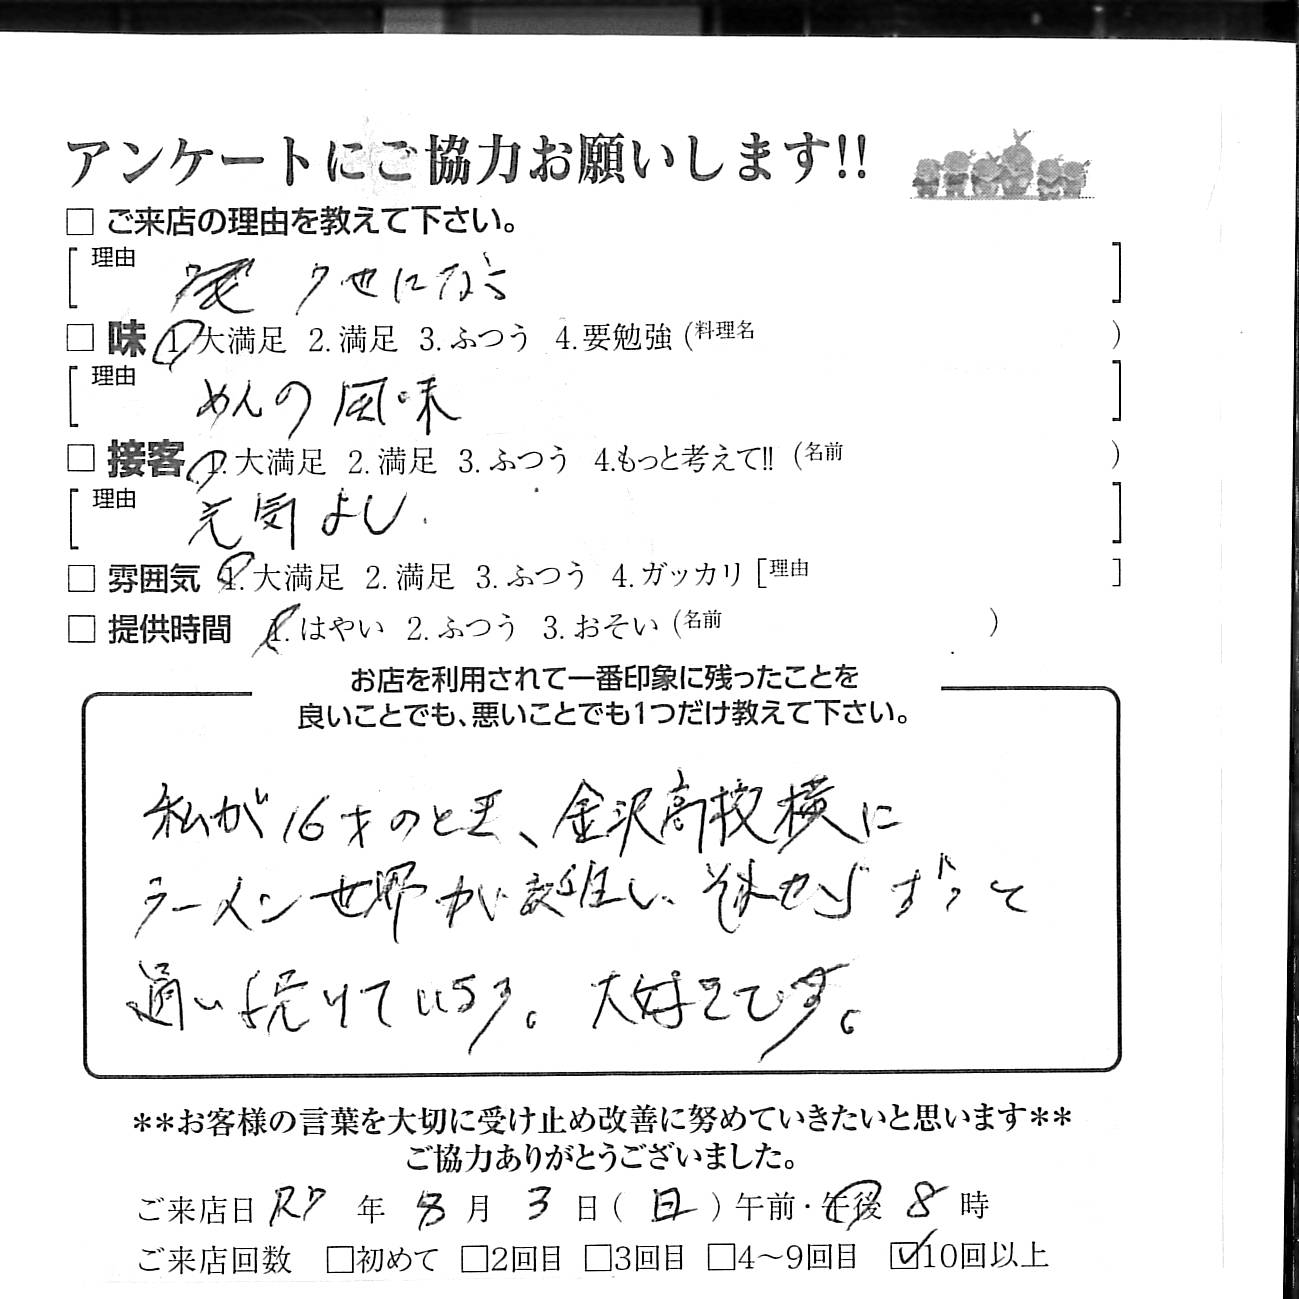 アンケートにご協力お願いします!!
□ ご来店の理由を教えて下さい。
理由 クセになる
□ 味 1.大満足 2.満足 3.ふつう 4.要勉強 (料理名 )
理由 めんの風味
□ 接客 1.大満足 2.満足 3.ふつう 4.もっと考えて!! (名前 )
理由 元気よし.
□ 雰囲気 1.大満足 2.満足 3.ふつう 4.ガッカリ [理由 ]
□ 提供時間 1.はやい 2.ふつう 3.おそい (名前 )
お店を利用されて一番印象に残ったことを
良いことでも、悪いことでも1つだけ教えて下さい。
私が16才のとき、金沢高校横に
ラーメン世界が誕生し、それからずっと
通い続けています。大好きです。
**お客様の言葉を大切に受け止め改善に努めていきたいと思います**
ご協力ありがとうございました。
ご来店日 R7 年 8 月 3 日 ( 日 ) 午前・午後 8 時
ご来店回数 □初めて □2回目 □3回目 □4〜9回目 ☑10回以上